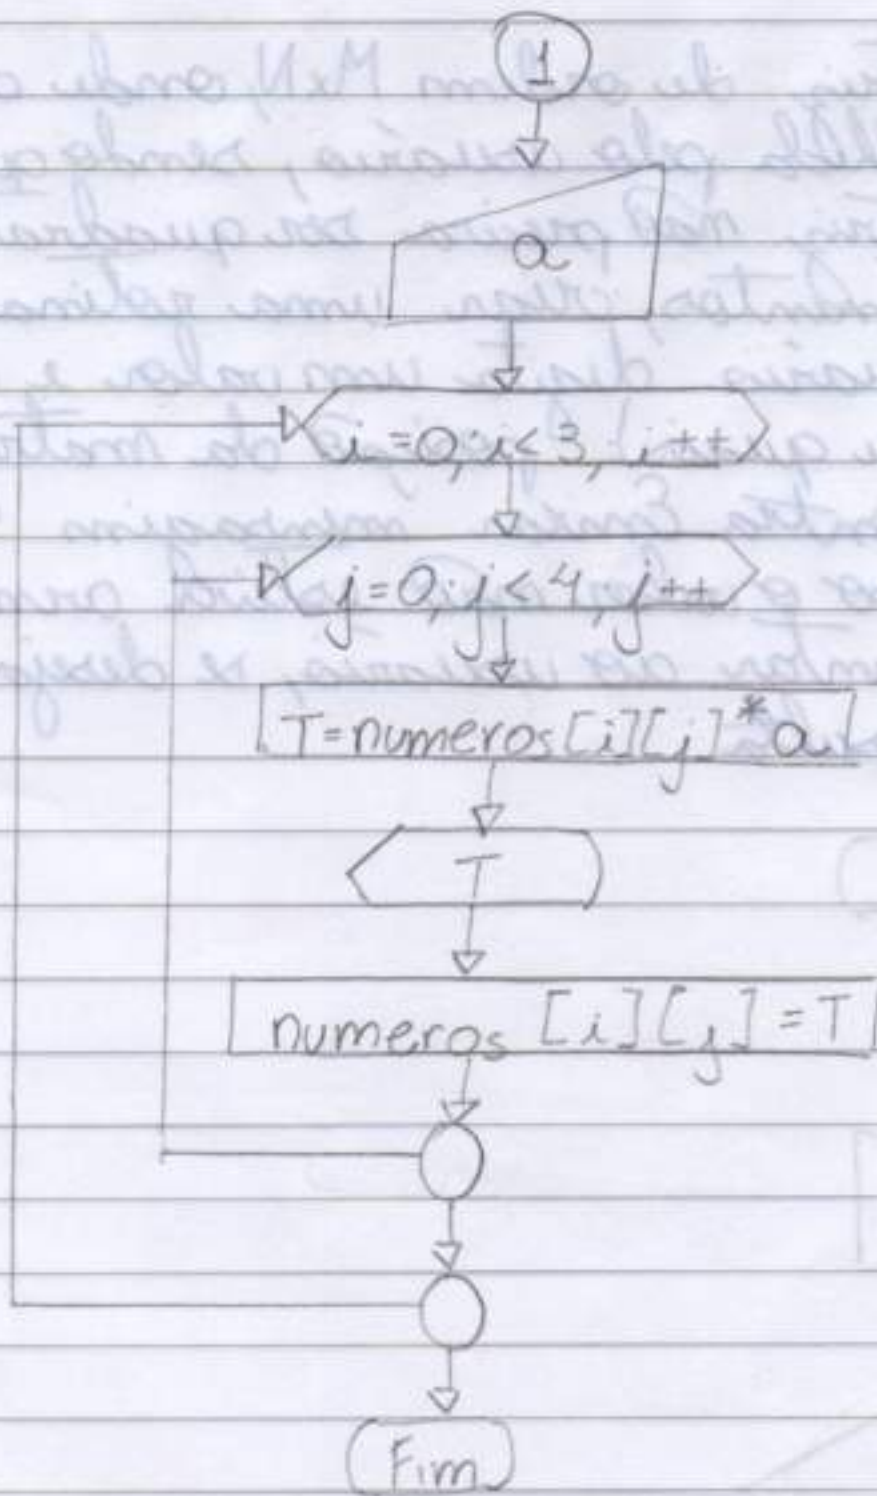 1
a
i=0; i<3, i++
j=0; j<4, j++
T=numeros[i][j]*a
T
numeros [i][j]=T
Fim